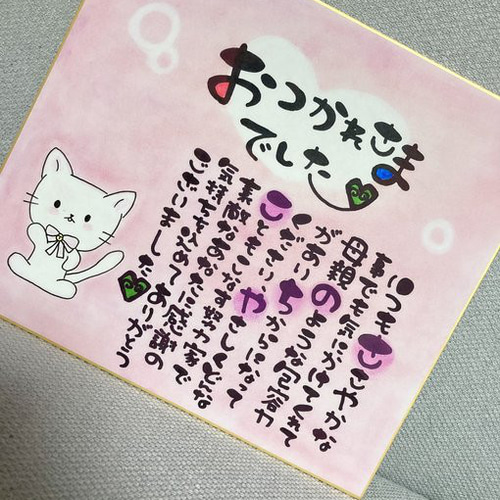 おつかれさま
でした
いつもささやかな
事でも気にかけてくれて
母親のような包容力
がありちからになって
くださいやさしくどんな
こともこなす努力家で
素敵なあなたに感謝の
気持ちを込めてありがとう
ございました